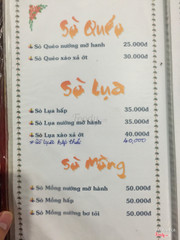 Sò Quéo
Sò Quéo nướng mỡ hành 25.000đ
Sò Quéo xào xả ớt 30.000đ
Sò Lụa
Sò Lụa hấp 35.000đ
Sò Lụa nướng mỡ hành 35.000đ
Sò Lụa xào xả ớt 40.000đ
Sò Lụa hấp thái 40,000
Sò Mồng
Sò Mồng nướng mỡ hành 50.000đ
Sò Mồng hấp 50.000đ
Sò Mồng nướng bơ tỏi 50.000đ